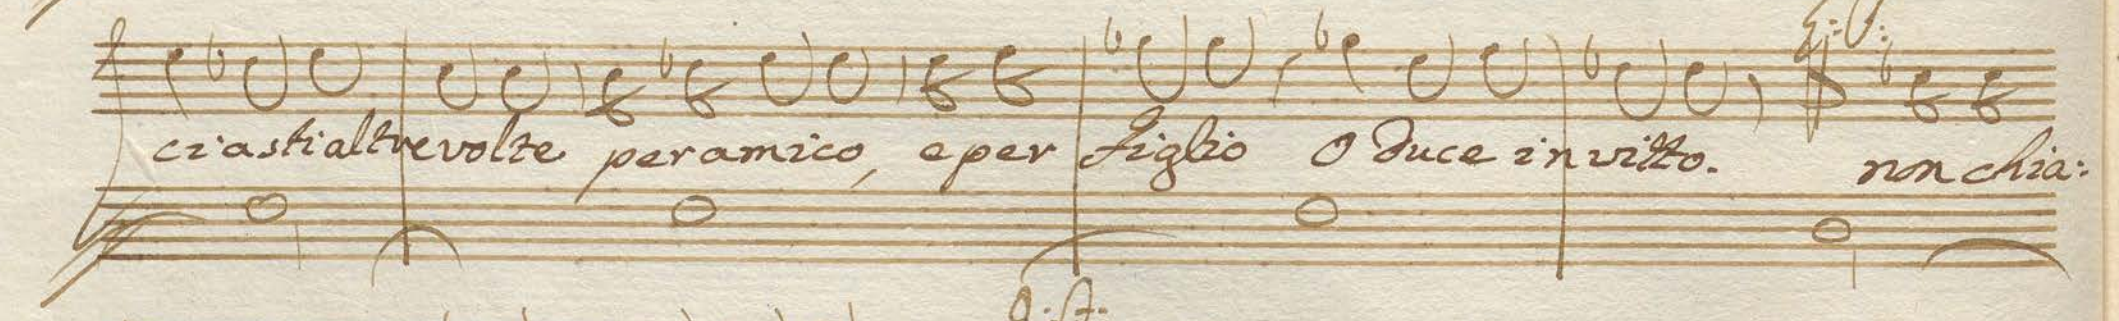 ciasti altre volte per amico, e per figlio O Duce invitto. non chia: